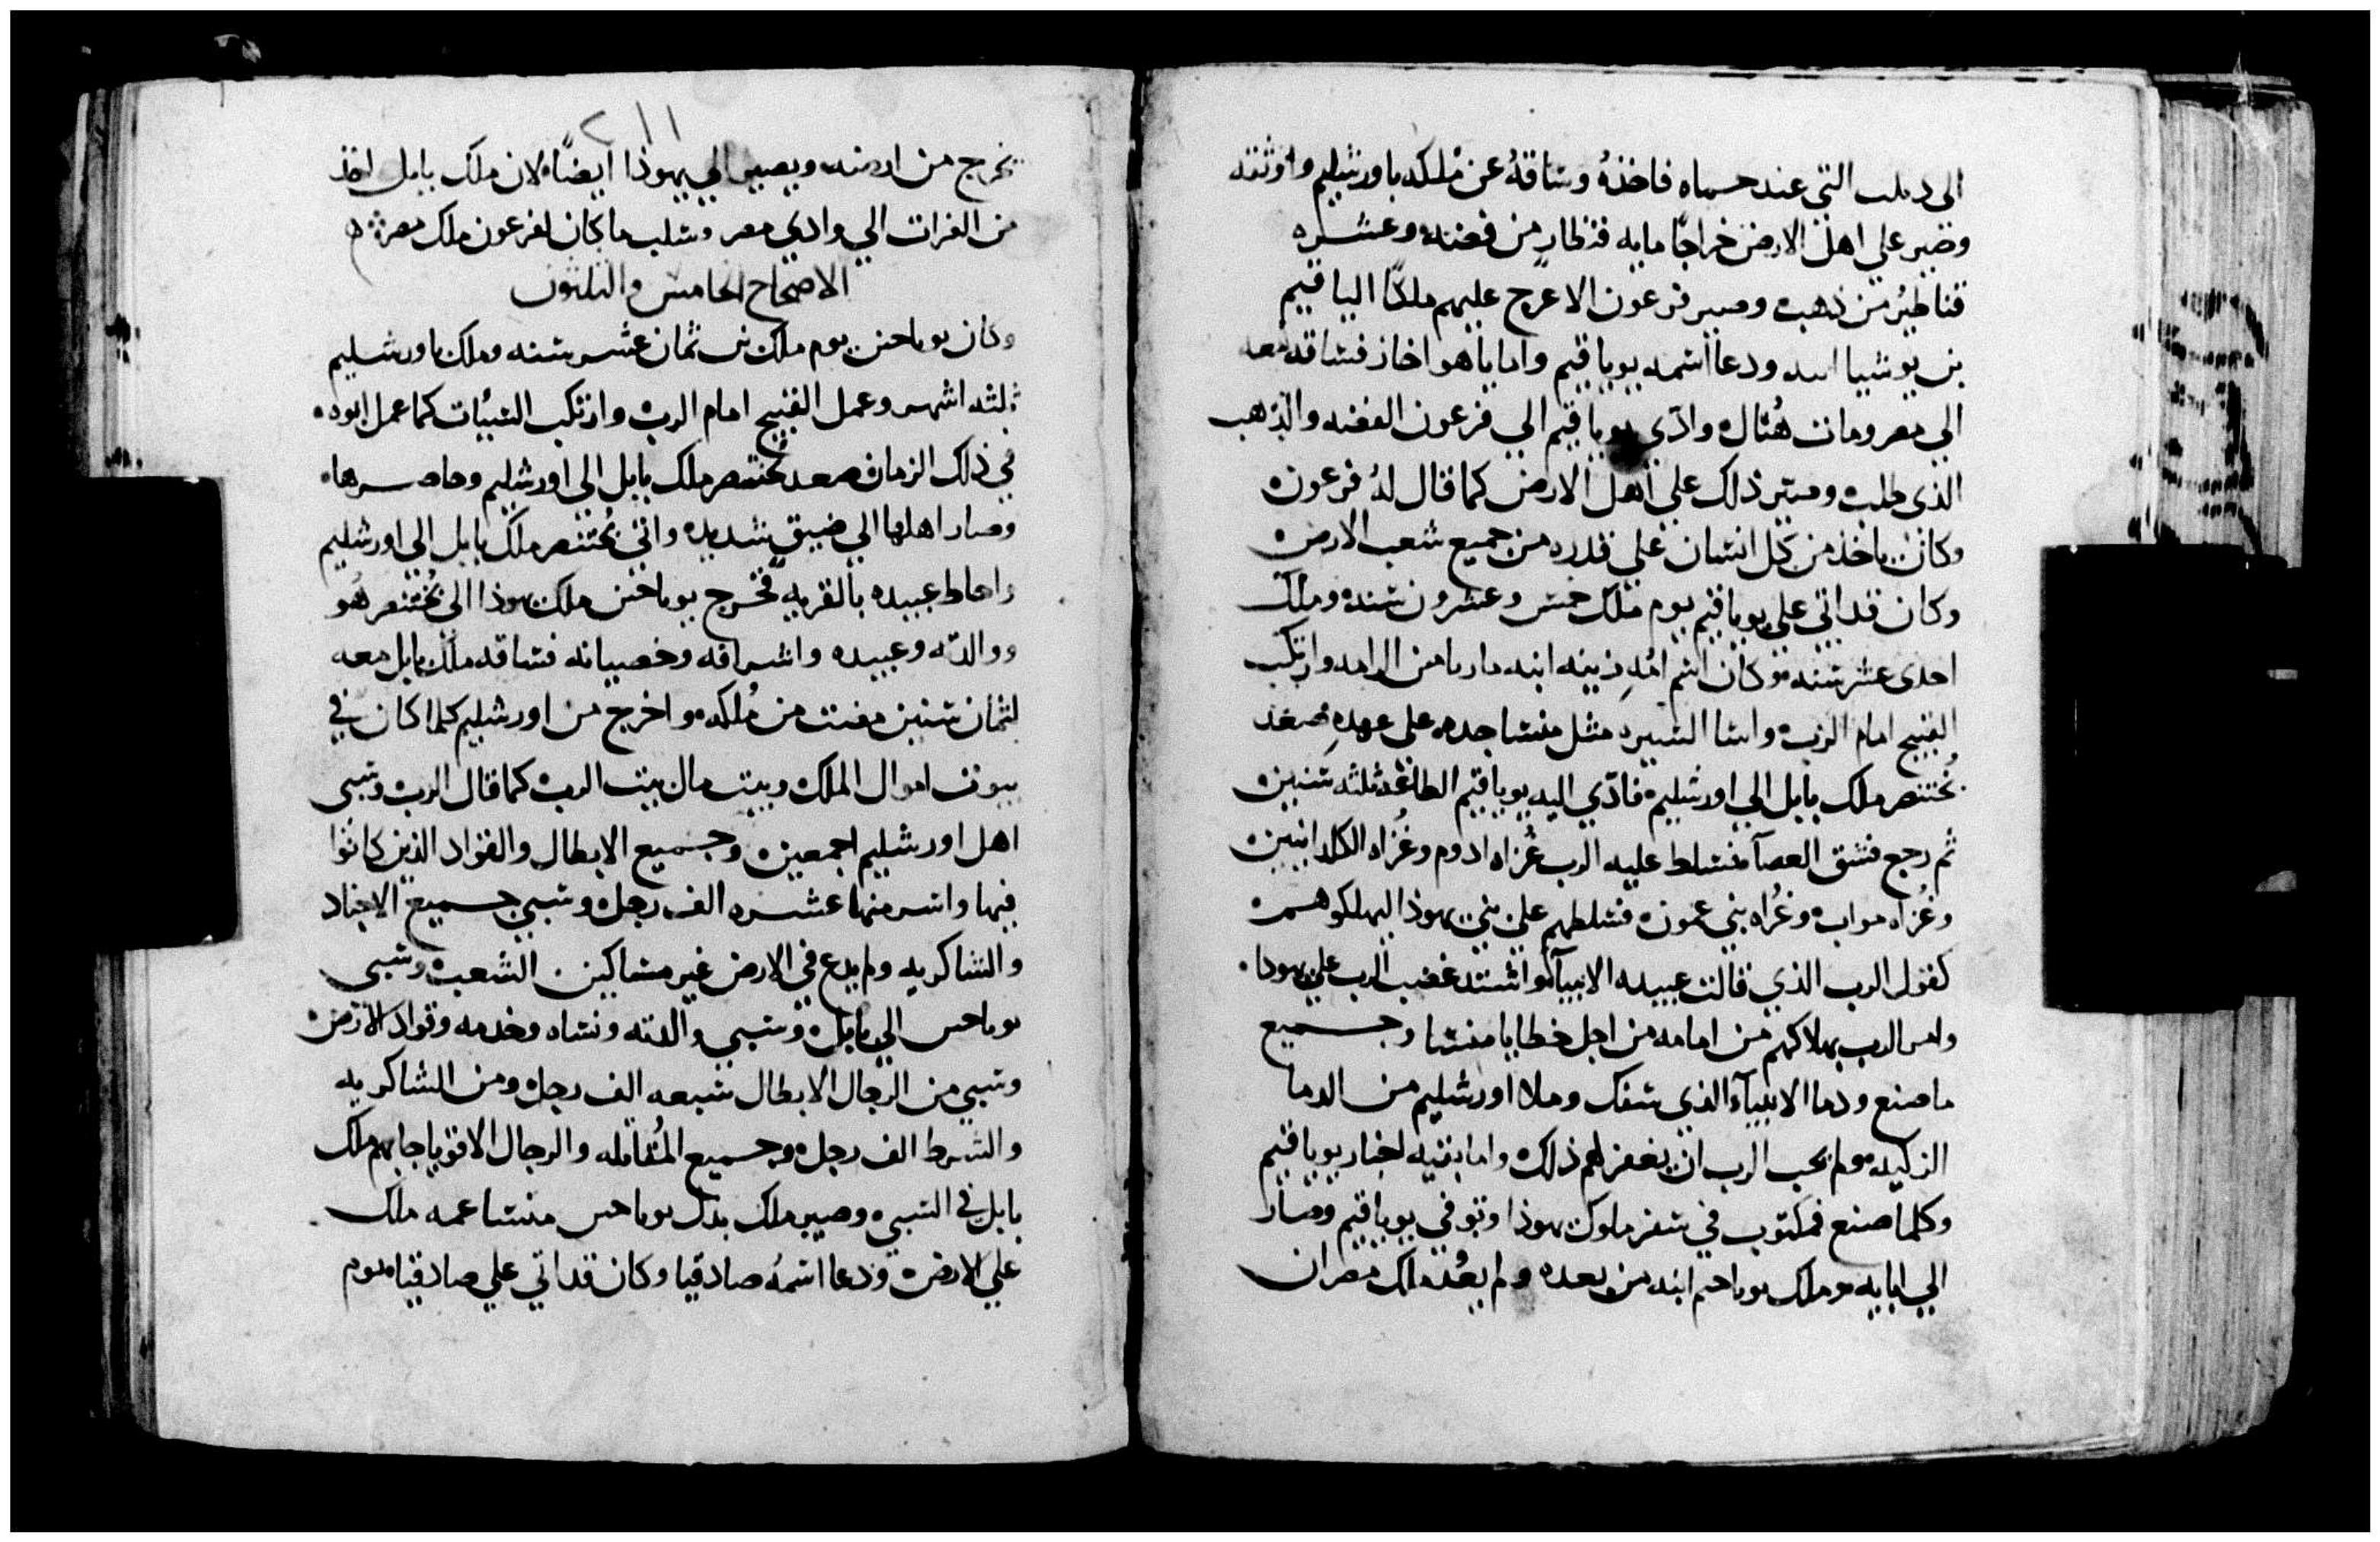 الى دبلت التي عند حماه فاخذهُ وساقهُ عن مُلكه باورشليم واوثقه
وصير علي اهل الارض خراجًا مايه قنطارٍ من فضه وعشره
قناطيرُ من ذهب وصير فرعون الاعرج عليهم ملكًا الياقيم
بن يوشيا ابيه ودعا اسمه يوياقيم واما ياهواخاز فساقه معه
الي مصر ومات هُناك وادّي يوياقيم الي فرعون الفضه والذهب
الذي طلب وصير ذلك علي اهل الارض كما قال لهُ فرعون
وكان ياخذ من كل انسان علي قدره من جميع شعب الارض
وكان قد اتي علي يوياقيم يوم ملك خمس وعشرون سنه وملك
احدى عشر سنه وكان اسم امُهِ زبينه ابنه من الرامه وارتكب
القبيح امام الرب واسا السيره مثل منسا جده على عهدهِ صعد
بُختنصر ملك بابل الي اورشليم فادّي اليه يوياقيم الطاعه ثلثه سنين
ثم رجع فشق العصا فسلط عليه الرب غُزاه ادوم وغُزاه الكلدانيين
وغُزاه مواب وغُزاه بني عمون فسلطهم علي بني يهوذا ليهلكوهم
كقول الرب الذي قالت عبيده الانبيآ واشتد غضب الرب علي يهوذا
وامر الرب بهلاكهم من امامه من اجل خطايا منسا وجميع
ما صنع ودما الانبيآء الذي سفك وملا اورشليم من الدما
الزكيه ولم يحب الرب ان يغفر لهم ذلك واما بقيه اخبار يوياقيم
وكلما صنع فمكتوب في سفر ملوك يهوذا وتوفي يوياقيم وصار
الي ابايه وملك يوياحين ابنه من بعده ولم يعُد ملك مصر ان
٢١١
يخرج من ارضه ويصير الي يهوذا ايضًا لان ملك بابل اخذ
من الفرات الي وادي مصر وسلب ما كان لفرعون ملك مصر
الاصحاح الخامس والثلثون
وكان يوياحين يوم ملك بن ثمان عشر سنه وملك باورشليم
ثلثه اشهر وعمل القبيح امام الرب وارتكب السيُات كما عمل ابوه
في ذلك الزمان صعد بُختنصر ملك بابل الي اورشليم وحاصرها
وصار اهلها الي ضيقٍ شديده واتي بُختنصر ملك بابل الي اورشليم
واحاط عبيده بالقريه فخرج يوياحين ملك يهوذا الي بُختنصر هُو
ووالدته وعبيده واشرافه وخصيانه فساقه ملك بابل معه
لثمان سنين مضت من مُلكه واخرج من اورشليم كلما كان في
بيوت اموال الملك وبيت مال بيت الرب كما قال الرب وسبى
اهل اورشليم اجمعين وجميع الابطال والقواد الذين كانوا
فيها واسر منها عشره الف رجل وسبي جميع الاجناد
والشاكريه ولم يدع في الارض غير مساكين الشعب وسبى
يوياحين الي بابل وسبي والدته ونساه وخدمه وقواد الارض
وسبي من الرجال الابطال سبعه الف رجل ومن الشاكريه
والشرط الف رجل وجميع المُقاتله والرجال الاقويا جابهم ملك
بابل في السبي وصير ملك بدل يوياحين منسا عمه ملك
علي الارض ودعا اسمهُ صادقيا وكان قد اتي علي صادقيا يوم